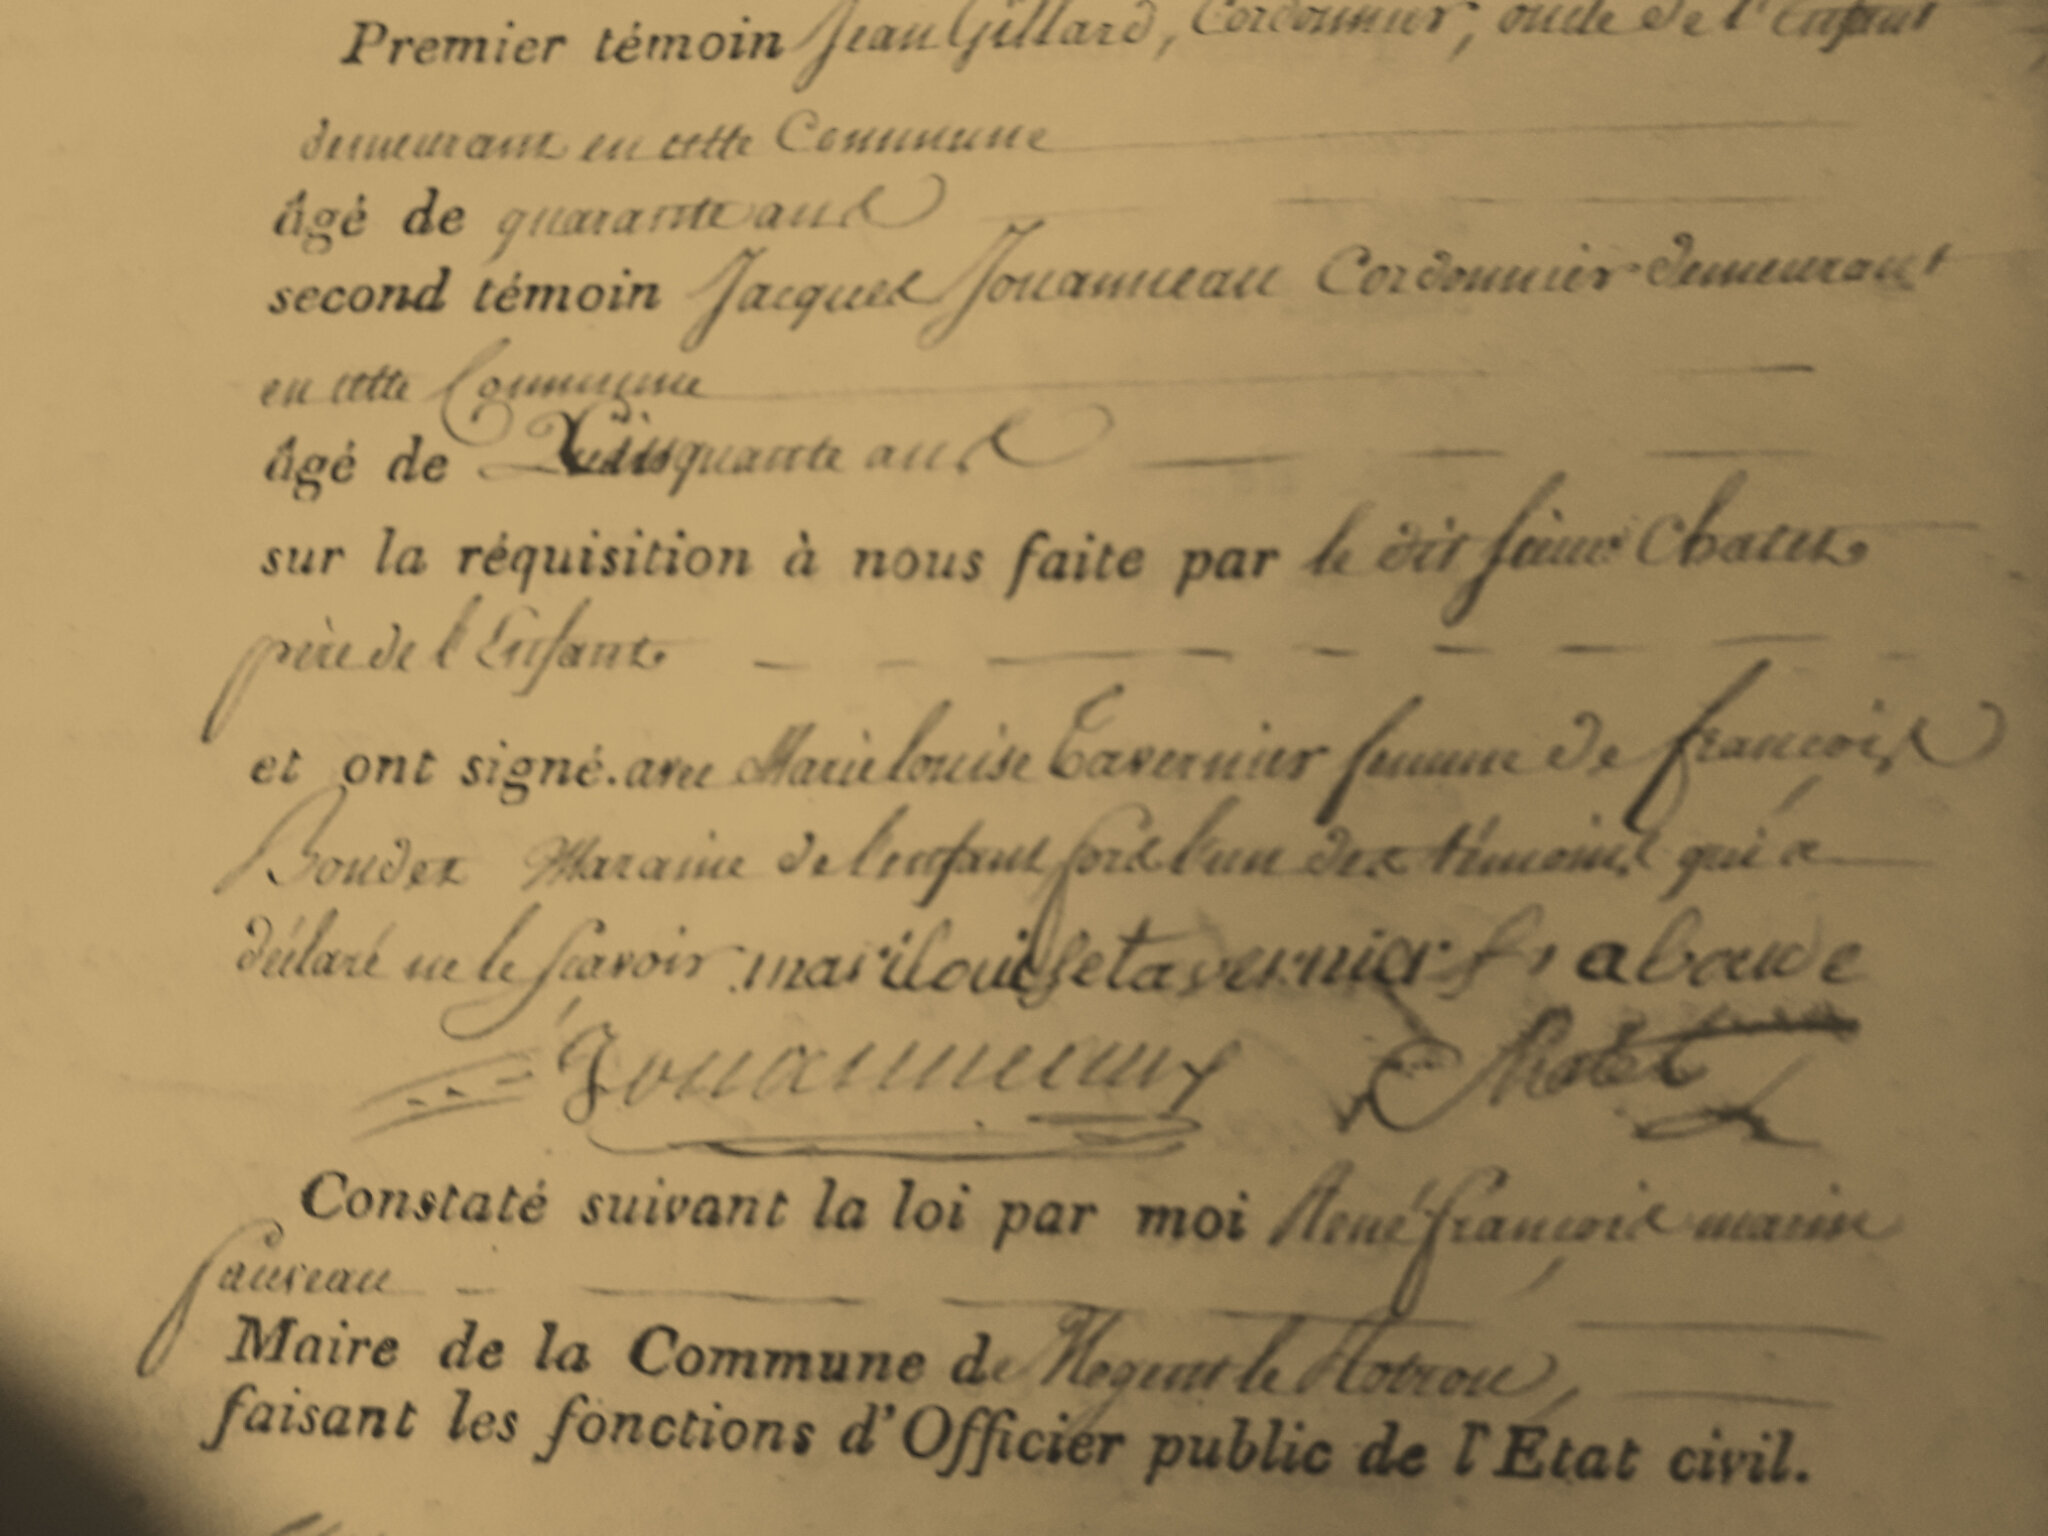 Premier témoin Jean Gillard, Cordonnier, oncle de l'Enfant
demeurant en cette Commune
âgé de quarante ans
second témoin Jacques Jouanneau Cordonnier demeurant
en cette Commune
âgé de Cinquante ans
sur la réquisition à nous faite par le dit sieur Chatet
père de l'Enfant
et ont signé. avec Marie louise Tavernier femme de françois
Boudet Maraine de l'enfant fors l'un des témoins qui a
déclaré ne le sçavoir marilouisetavernier fr aboude
Jouanneaux Chatet
Constaté suivant la loi par moi René françois marin
fauveau
Maire de la Commune de Nogent le Rotrou,
faisant les fonctions d'Officier public de l'Etat civil.